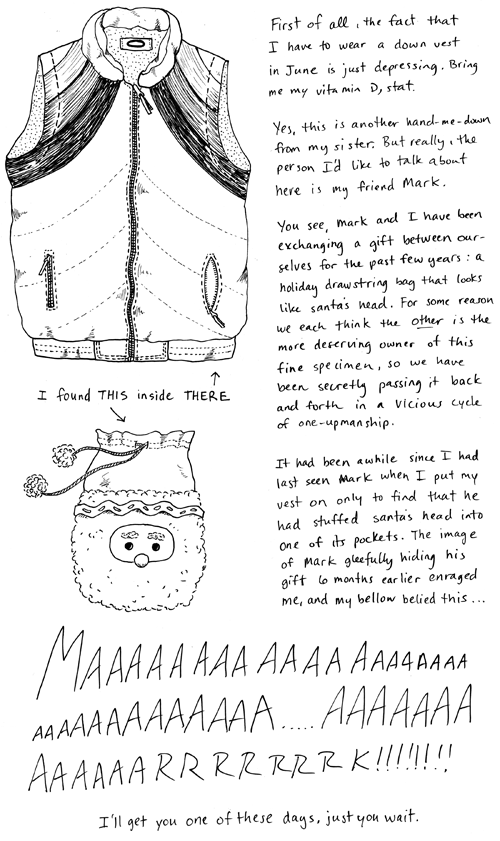 First of all, the fact that
I have to wear a down vest
in June is just depressing. Bring
me my vitamin D, stat.
Yes, this is another hand-me-down
from my sister. But really, the
person I'd like to talk about
here is my friend Mark.
You see, Mark and I have been
exchanging a gift between our-
selves for the past few years: a
holiday drawstring bag that looks
like santa's head. For some reason
we each think the other is the
more deserving owner of this
fine specimen, so we have
been secretly passing it back
and forth in a vicious cycle
of one-upmanship.
It had been awhile since I had
last seen Mark when I put my
vest on only to find that he
had stuffed santa's head into
one of its pockets. The image
of Mark gleefully hiding his
gift 6 months earlier enraged
me, and my bellow belied this...
I found THIS inside THERE
MAAAAAAAAAAAAAAAAAAAA
AAAAAAAAAAAAAA.....AAAAAAA
AAAAAARRRRRRRK!!!!!!!!
I'll get you one of these days, just you wait.